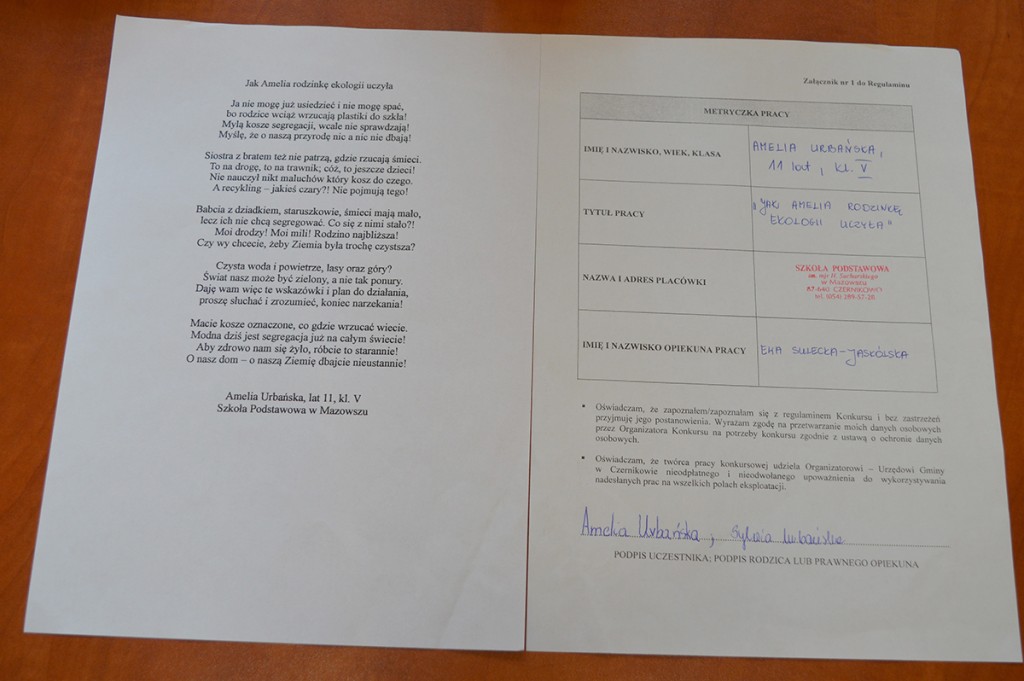 Jak Amelia rodzinkę ekologii uczyła
Ja nie mogę już usiedzieć i nie mogę spać,
bo rodzice wciąż wrzucają plastiki do szkła!
Mylą kosze segregacji, wcale nie sprawdzają!
Myślę, że o naszą przyrodę nic a nic nie dbają!
Siostra z bratem też nie patrzą, gdzie rzucają śmieci.
To na drogę, to na trawnik; cóż, to jeszcze dzieci!
Nie nauczył nikt maluchów który kosz do czego.
A recykling – jakieś czary?! Nie pojmują tego!
Babcia z dziadkiem, staruszkowie, śmieci mają mało,
lecz ich nie chcą segregować. Co się z nimi stało?!
Moi drodzy! Moi mili! Rodzino najbliższa!
Czy wy chcecie, żeby Ziemia była trochę czystsza?
Czysta woda i powietrze, lasy oraz góry?
Świat nasz może być zielony, a nie tak ponury.
Daję wam więc te wskazówki i plan do działania,
proszę słuchać i zrozumieć, koniec narzekania!
Macie kosze oznaczone, co gdzie wrzucać wiecie.
Modna dziś jest segregacja już na całym świecie!
Aby zdrowo nam się żyło, róbcie to starannie!
O nasz dom – o naszą Ziemię dbajcie nieustannie!
Amelia Urbańska, lat 11, kl. V
Szkoła Podstawowa w Mazowszu
Załącznik nr 1 do Regulaminu
METRYCZKA PRACY
IMIĘ I NAZWISKO, WIEK, KLASA
AMELIA URBAŃSKA,
11 lat, kl. V
TYTUŁ PRACY
"JAK AMELIA RODZINKĘ
EKOLOGII UCZYŁA"
NAZWA I ADRES PLACÓWKI
SZKOŁA PODSTAWOWA
im. mjr H. Sucharskiego
w Mazowszu
87-640 CZERNIKOWO
tel. (054) 289-57-28
IMIĘ I NAZWISKO OPIEKUNA PRACY
EWA SULECKA-JASKÓLSKA
• Oświadczam, że zapoznałem/zapoznałam się z regulaminem Konkursu i bez zastrzeżeń
przyjmuję jego postanowienia. Wyrażam zgodę na przetwarzanie moich danych osobowych
przez Organizatora Konkursu na potrzeby konkursu zgodnie z ustawą o ochronie danych
osobowych.
• Oświadczam, że twórca pracy konkursowej udziela Organizatorowi – Urzędowi Gminy
w Czernikowie nieodpłatnego i nieodwołanego upoważnienia do wykorzystywania
nadesłanych prac na wszelkich polach eksploatacji.
Amelia Urbańska, Sylwia Urbańska
PODPIS UCZESTNIKA; PODPIS RODZICA LUB PRAWNEGO OPIEKUNA